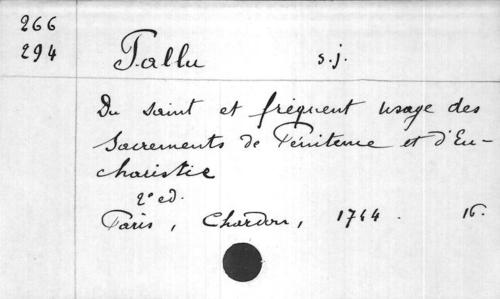 266
294
Tallu s.j.
Du saint et fréquent usage des
Sacrements de Pénitence et d'Eu-
charistie
2e ed.
Paris, Chardon, 1744. 16.